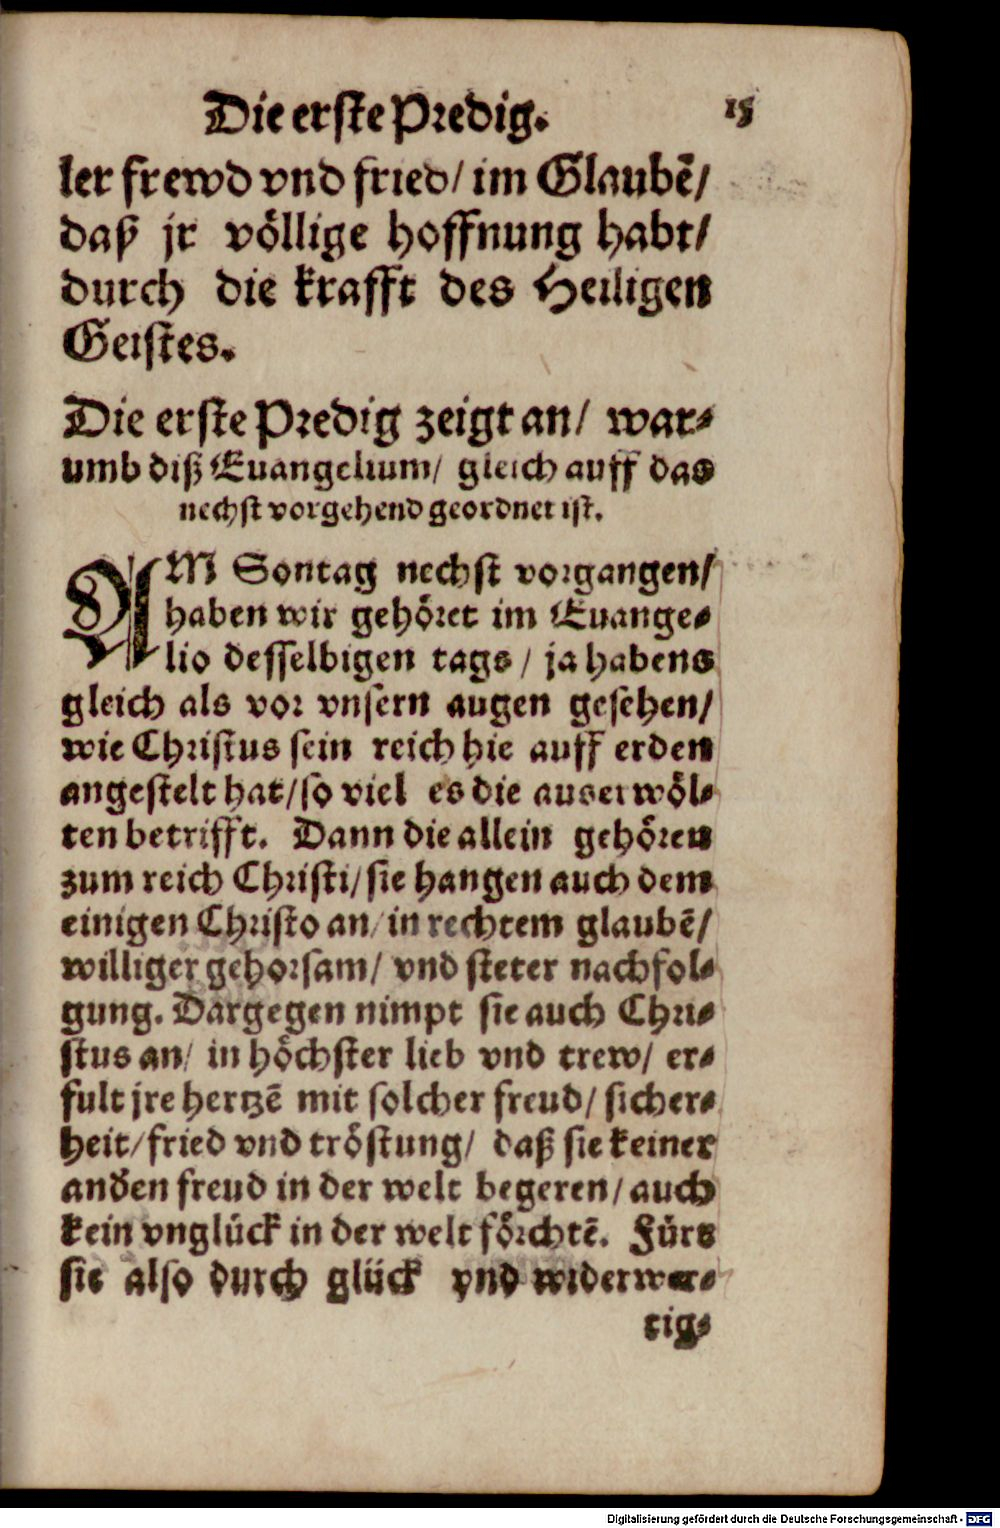 Die erste Predig. 15
ler frewd vnd fried/ im Glaubẽ/
daß jr völlige hoffnung habt/
durch die krafft des Heiligen
Geistes.
Die erste Predig zeigt an/ war-
umb diß Euangelium/ gleich auff das
nechst vorgehend geordnet ist.
AM Sontag nechst vorgangen/
haben wir gehöret im Euange-
lio desselbigen tags / ja habens
gleich als vor vnsern augen gesehen/
wie Christus sein reich hie auff erden
angestelt hat/ so viel es die auserwöl-
ten betrifft. Dann die allein gehören
zum reich Christi/ sie hangen auch dem
einigen Christo an/ in rechtem glaubẽ/
williger gehorsam/ vnd steter nachfol-
gung. Dargegen nimpt sie auch Chri-
stus an/ in höchster lieb vnd trew/ er-
fult jre hertzẽ mit solcher freud/ sicher-
heit/ fried vnd tröstung/ daß sie keiner
andẽn freud in der welt begeren/ auch
kein vnglück in der welt förchtẽ. Fürt
sie also durch glück vnd widerwer-
tig-
Digitalisierung gefördert durch die Deutsche Forschungsgemeinschaft - DFG